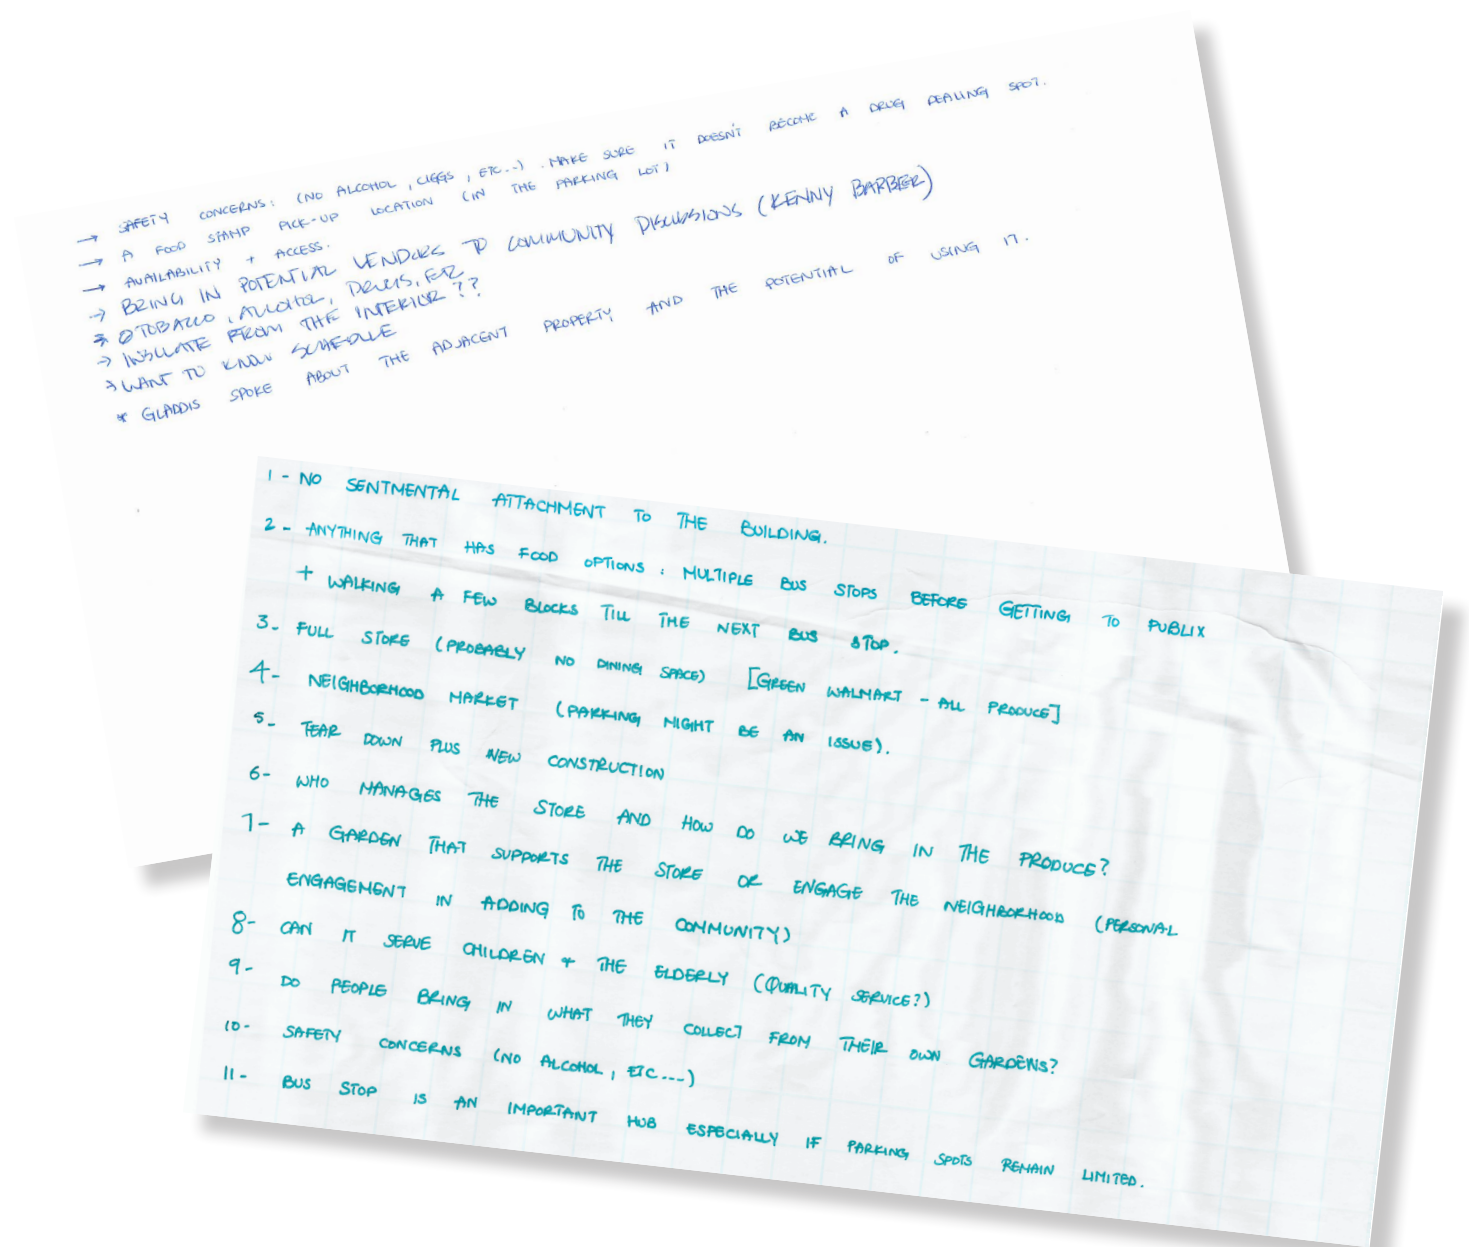 → SAFETY CONCERNS: (NO ALCOHOL, CIGGS, ETC...). MAKE SURE IT DOESN'T BECOME A DRUG DEALING SPOT.
→ A FOOD STAMP PICK-UP LOCATION (IN THE PARKING LOT)
→ AVAILABILITY + ACCESS.
→ BRING IN POTENTIAL VENDORS TO COMMUNITY DISCUSSIONS (KENNY BARBER)
→ Ø TOBACCO, ALCOHOL, DRUGS, ETC
→ INSULATE FROM THE INTERIOR??
→ WANT TO KNOW SCHEDULE
* GLADDIS SPOKE ABOUT THE ADJACENT PROPERTY AND THE POTENTIAL OF USING IT.
1 - NO SENTMENTAL ATTACHMENT TO THE BUILDING.
2 - ANYTHING THAT HAS FOOD OPTIONS: MULTIPLE BUS STOPS BEFORE GETTING TO PUBLIX
+ WALKING A FEW BLOCKS TILL THE NEXT BUS STOP.
3 - FULL STORE (PROBABLY NO DINING SPACE) [GREEN WALMART - ALL PRODUCE]
4 - NEIGHBORHOOD MARKET (PARKING MIGHT BE AN ISSUE).
5 - TEAR DOWN PLUS NEW CONSTRUCTION
6 - WHO MANAGES THE STORE AND HOW DO WE BRING IN THE PRODUCE?
7 - A GARDEN THAT SUPPORTS THE STORE OR ENGAGE THE NEIGHBORHOOD (PERSONAL
ENGAGEMENT IN ADDING TO THE COMMUNITY)
8 - CAN IT SERVE CHILDREN + THE ELDERLY (QUALITY SERVICE?)
9 - DO PEOPLE BRING IN WHAT THEY COLLECT FROM THEIR OWN GARDENS?
10 - SAFETY CONCERNS (NO ALCOHOL, ETC....)
11 - BUS STOP IS AN IMPORTANT HUB ESPECIALLY IF PARKING SPOTS REMAIN LIMITED.